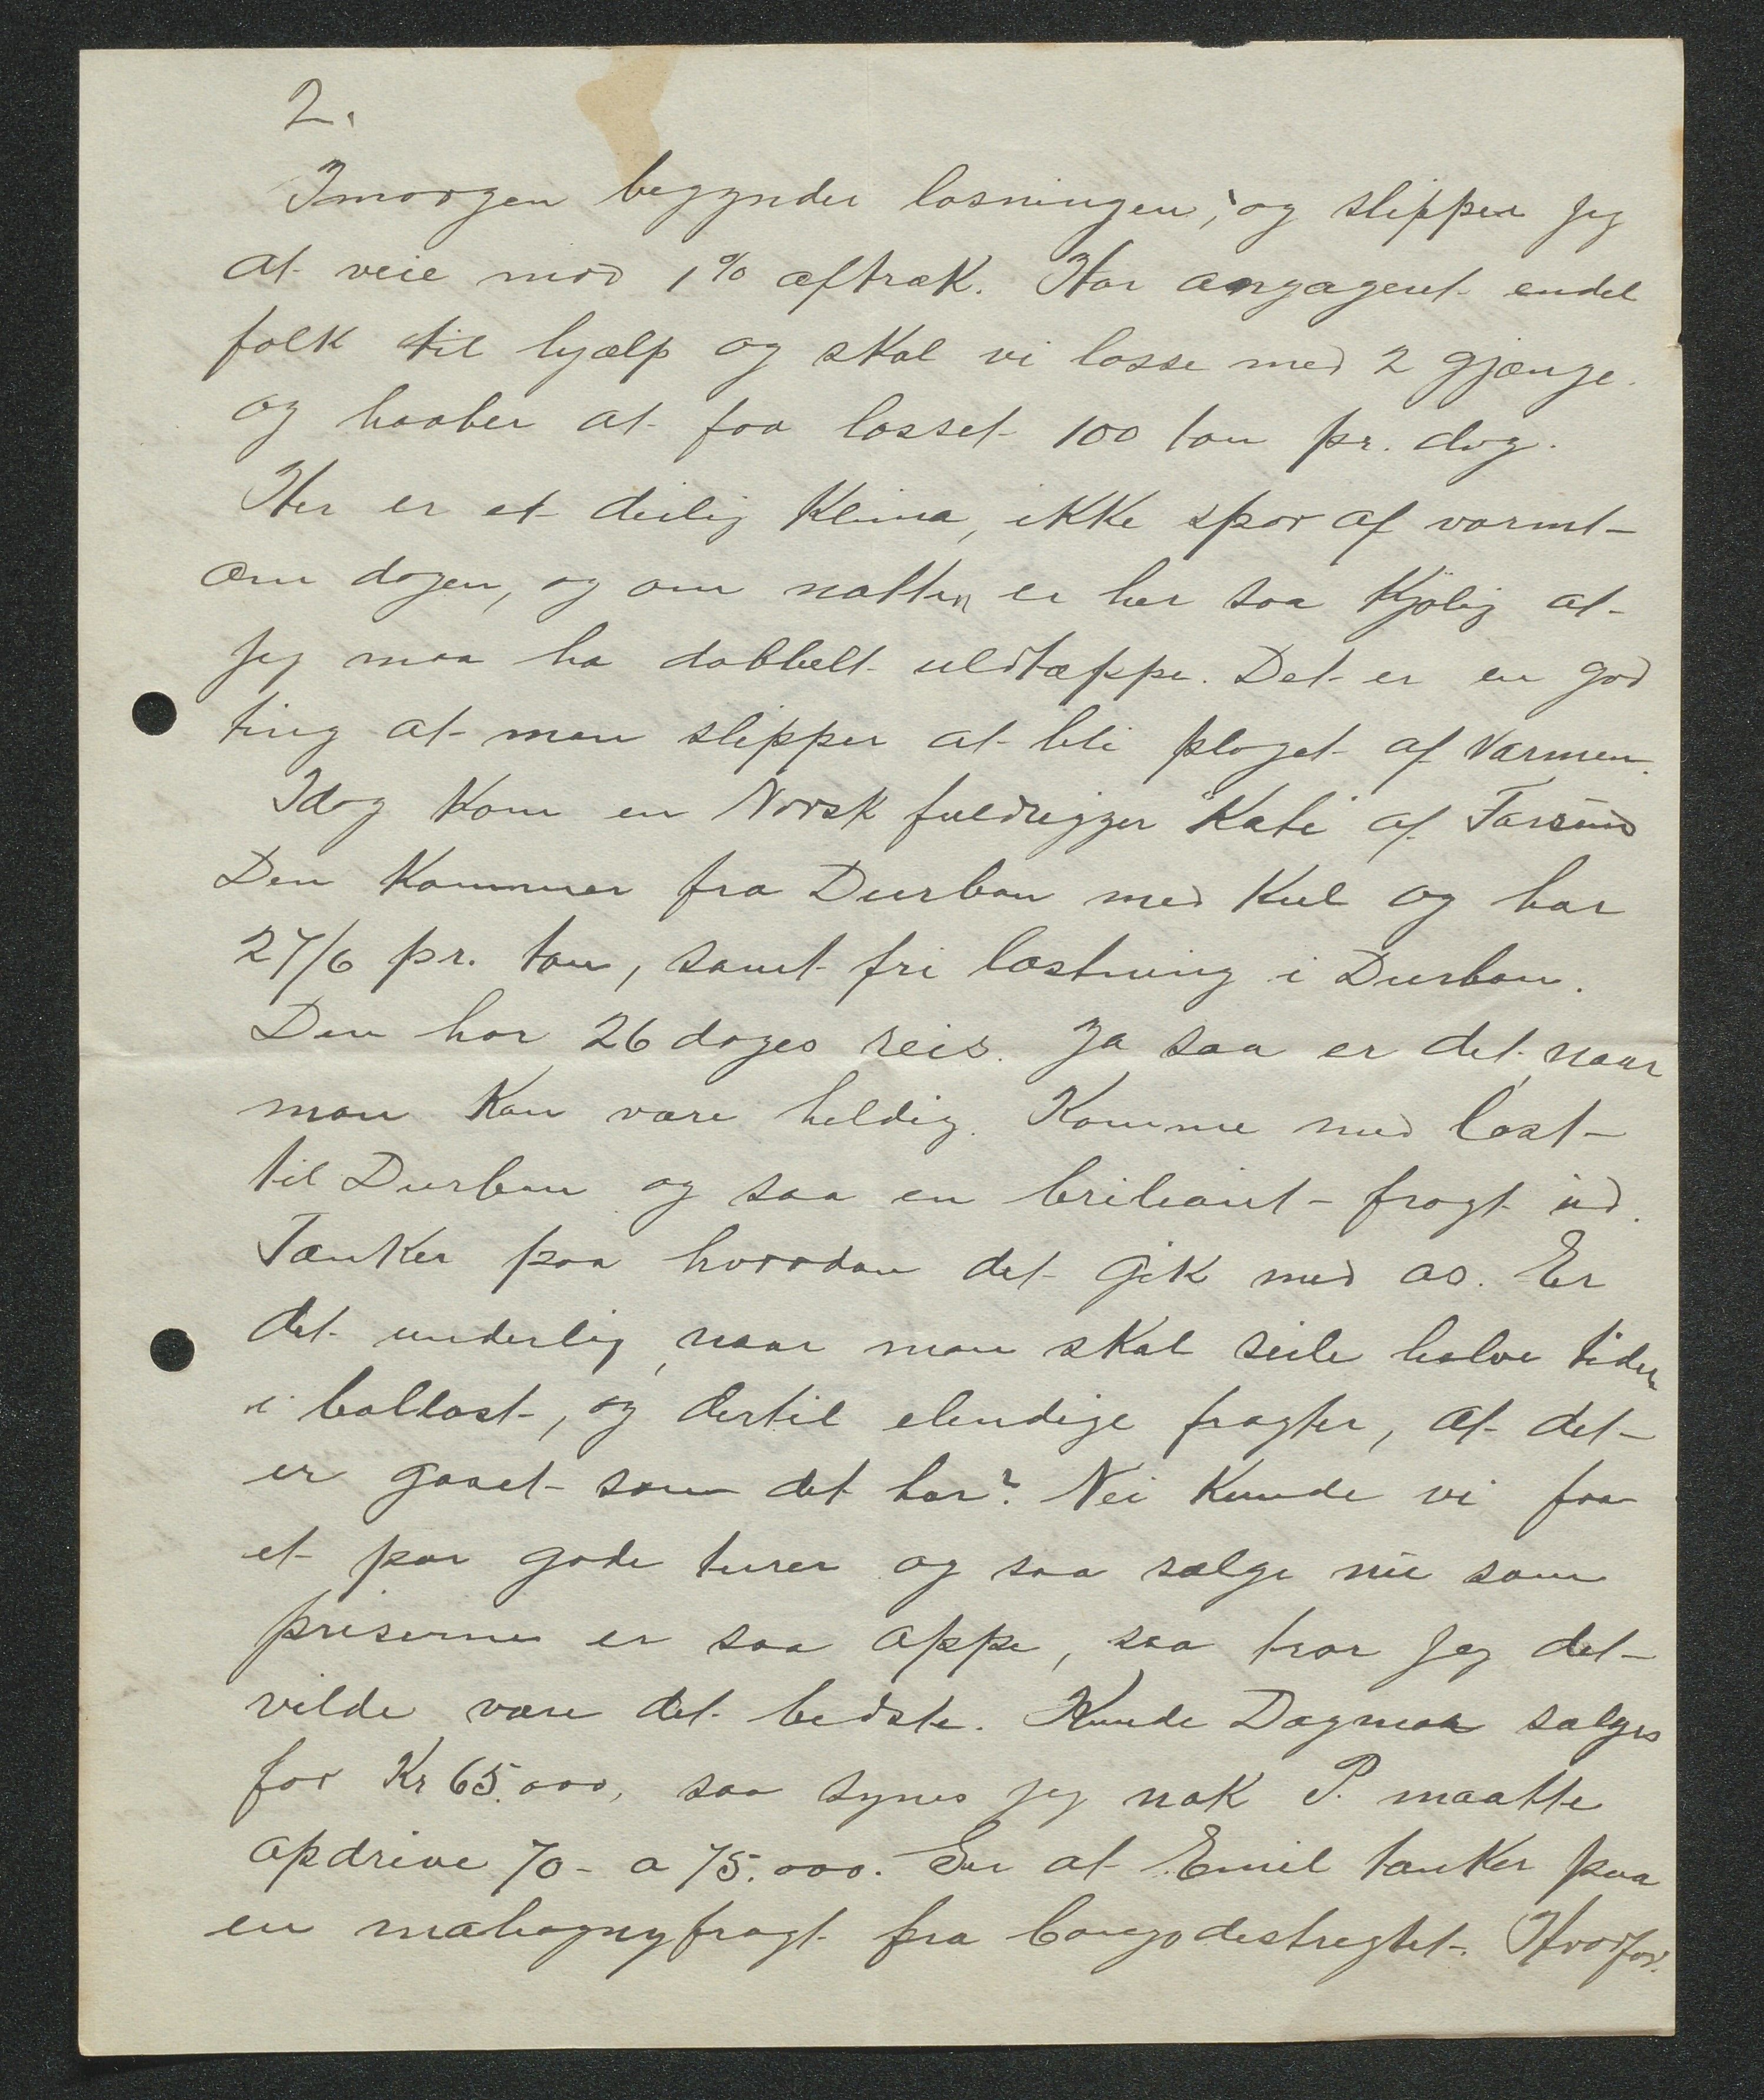 2.
Imorgen begynder losningen, og slipper jeg
at veie mod 1% aftræk. Har angageret endel
folk til hjælp og skal vi losse med 2 gjænge.
og haaber at faa losset 100 ton pr. dag.
Her er et deilig Klima, ikke spor af varmt
om dagen, og om natten er her saa Kjølig at
jeg maa ha dobbelt uldtæppe. Det er en god
ting at man slipper at bli plaget af Varmen.
Idag Kom en Norsk fuldrigger "Kate" af Farsund
Den Kommer fra Durban med Kul og har
27/6 pr. ton, samt fri lastning i Durban.
Den har 26 dages reis. Ja saa er det, naar
man Kan være heldig. Komme med last
til Durban og saa en briliant fragt ud.
Tænker paa hvordan det gik med os. Er
det underlig, naar man skal seile halve tiden
i ballast, og dertil elendige fragter, at det
er gaaet som det har? Nei Kunde vi faa
et par gode turer og saa sælge nu som
priserne er saa oppe, saa tror jeg det
vilde være det bedste. Kunde Dagmar sælges
for Kr 65.000, saa synes jeg nok P. maatte
opdrive 70- a 75.000. Ser at Emil tænker paa
en mahognyfragt fra Congodestregtet. Hvorfor.